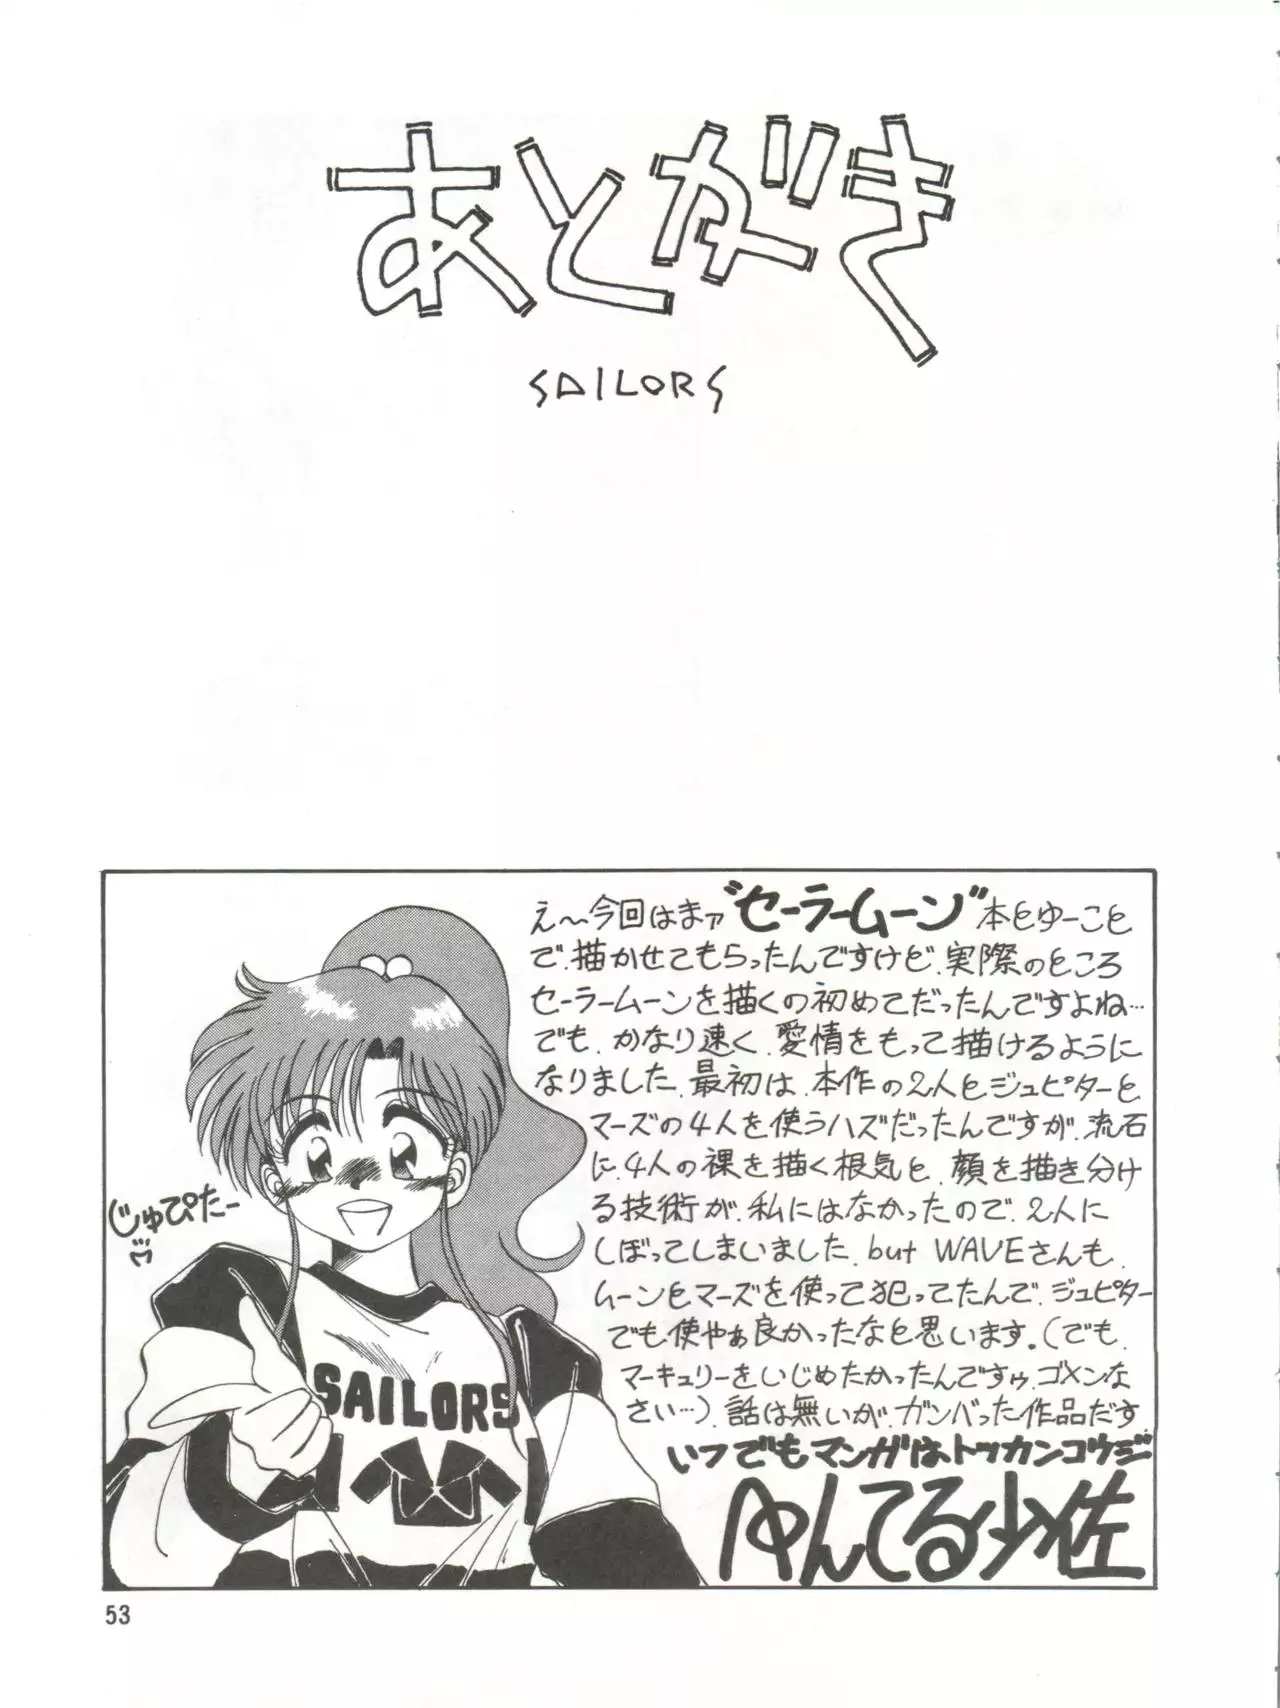 あとがき
SAILORS
え〜今回はまァ"セーラームーン"本とゆーこと
で、描かせてもらったんですけど、実際のところ
セーラームーンを描くの初めてだったんですよね…
でも、かなり速く、愛情をもって描けるように
なりました。最初は、本作の2人とジュピターと
マーズの4人を使うハズだったんですが、流石
に、4人の裸を描く根気と、顔を描き分け
る技術が、私にはなかったので、2人に
しぼってしまいました。but WAVEさんも、
ムーンとマーズを使って犯ってたんで、ジュピター
でも使やぁ良かったなと思います。(でも、
マーキュリーをいじめたかったんですゥ、ゴメンな
さい…)。話は無いが、ガンバった作品だす。
いつでもマンガはトッカンコウジ
ゆんてる少佐
じゅぴたー
SAILORS
53